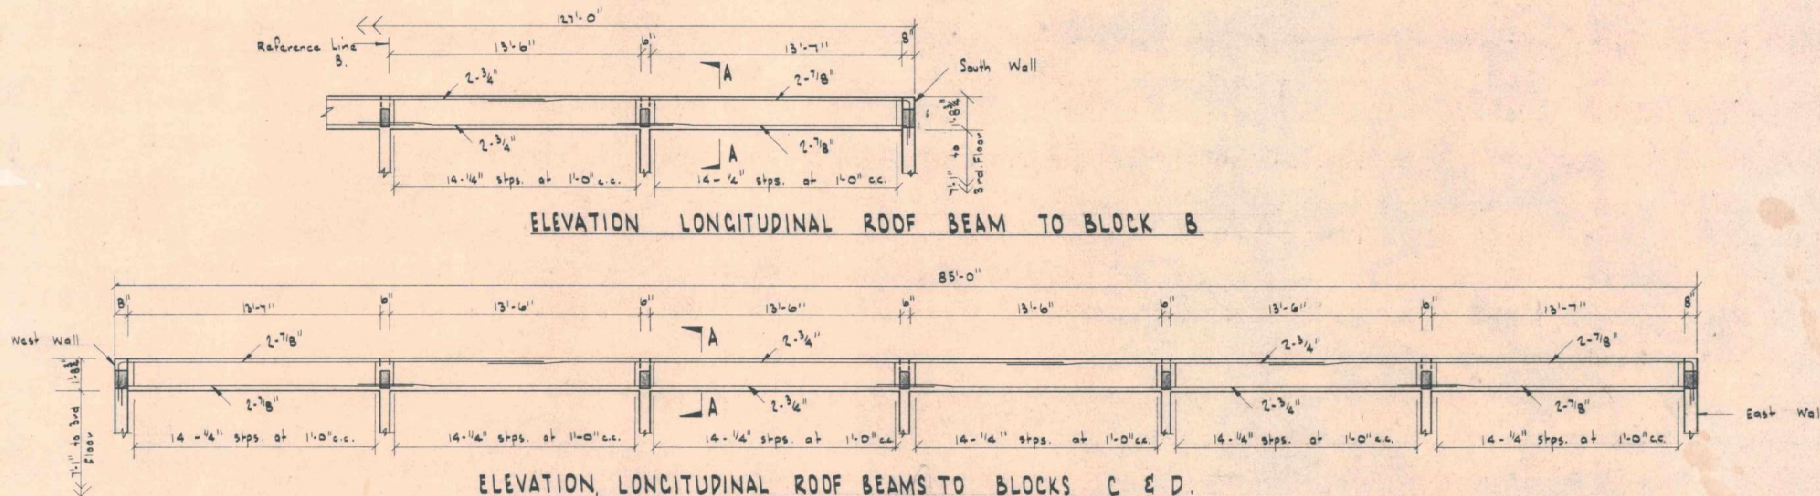 127'-0"
Reference Line
B.
13'-6" 6" 13'-7" 8"
South Wall
A
2-3/4" 2-7/8"
1'-8¾"
2-3/4" 2-7/8"
A
7'-1" to
3rd. Floor
14-1/4" stps. at 1'-0" c.c. 14-1/4" stps. at 1'-0" cc.
ELEVATION LONGITUDINAL ROOF BEAM TO BLOCK B
85'-0"
8" 13'-7" 6" 13'-6" 6" 13'-6" 6" 13'-6" 6" 13'-6" 6" 13'-7" 8"
West Wall
2-7/8" A 2-3/4" 2-3/4" 2-7/8"
1'-8¾"
2-7/8" A 2-3/4" 2-3/4" 2-7/8"
East Wal
7'-1" to 3rd
Floor
14-1/4" stps. at 1'-0" c.c. 14-1/4" stps. at 1'-0" c.c. 14-1/4" stps. at 1'-0" cc 14-1/4" stps. at 1'-0" c.c. 14-1/4" stps. at 1'-0" c.c. 14-1/4" stps. at 1'-0" c.c.
ELEVATION, LONGITUDINAL ROOF BEAMS TO BLOCKS C & D.